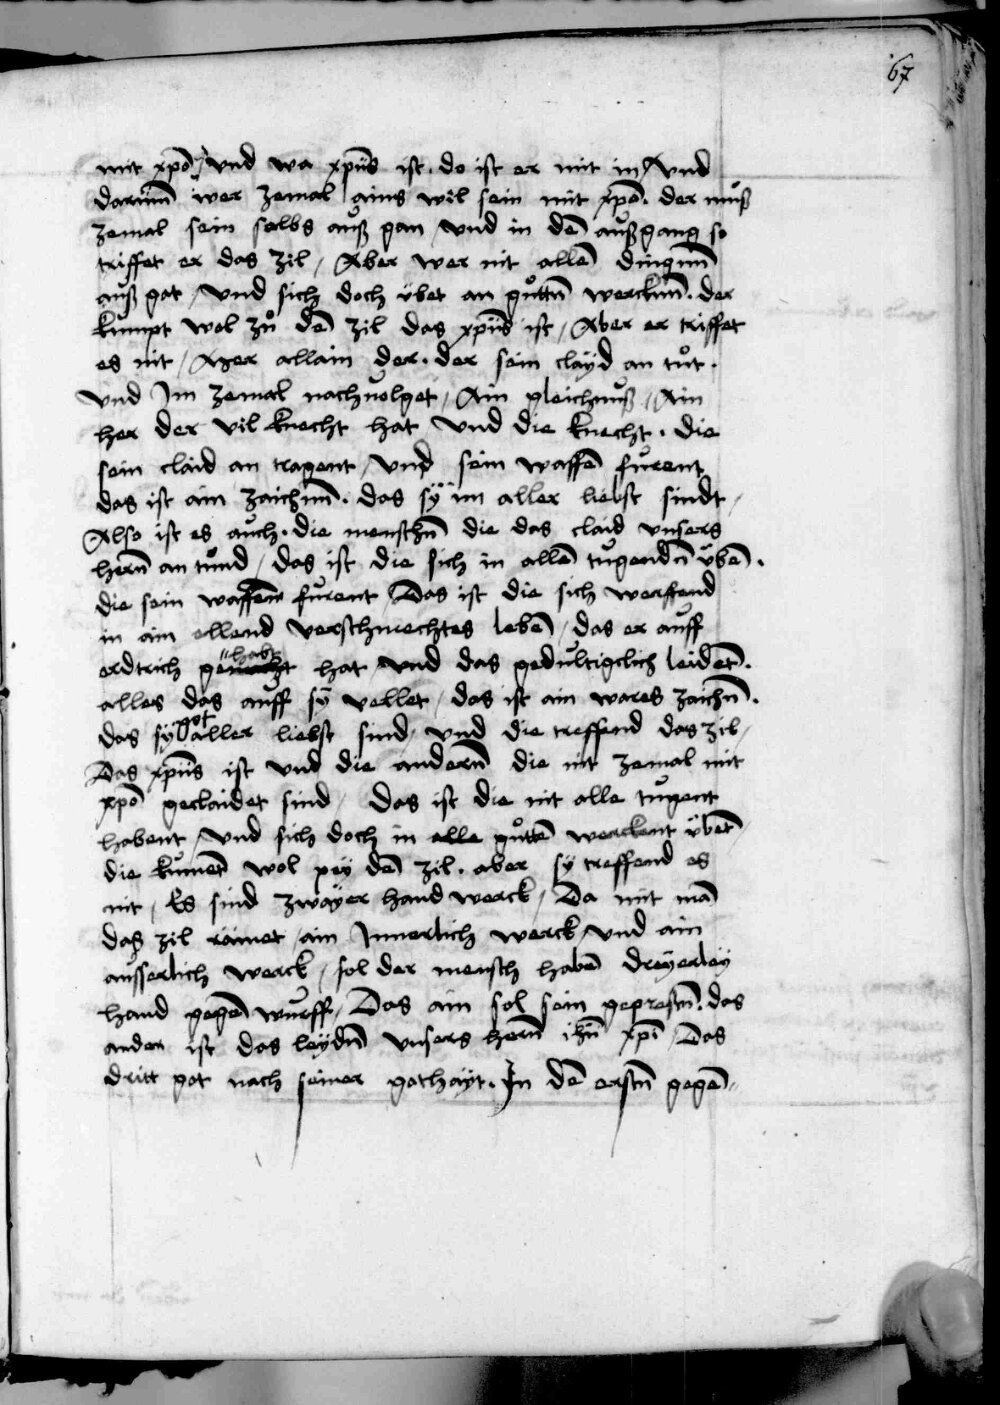 67
mit xp̄o / vnd wa xp̄us ist . do ist er mit in / vnd
darum̄ wer zemal ains wil sein mit xp̄o . der muͦß
zemal sein selbs auß gan / vnd in dē außgang so
triffet er das zil / Aber wer nit allē dingnn̄
auß gat / vnd sich doch übet an guͦttn̄ wercknn̄ . der
kumpt wol zuͦ dē zil das xp̄us ist / Aber er triffet
es nit / Aber allain der . der sein clayd an tuͦt .
vnd Im zemal nachuolget / Ain gleichnuß / Ain
her der vil knecht hat vnd die knecht . die
sein claid an tragent / vnd sein waffē furent
das ist ain zaichnn̄ . das sÿ im aller liebst sindt /
Also ist es auch . die menschn̄ die das claid vnsers
hern̄ an tuͦnd / das ist die sich in allē tugendn̄ übē .
die sein waffenn furent / Das ist die sich werffend
in ain ellend verschmechtes lebē / das er auff
erdtrich gehabt hat / vnd das gedultigclich leidēt .
alles das auff sÿ vellet / das ist ain wares zaichn̄ .
das sy got aller liebst sind / vnd die treffend das zil /
Das xp̄us ist vnd die andern̄ die nit zemal mit
xp̄o geclaidet sind / das ist die nit alle tugent
habent / vnd sich doch in alle guͦttē werckent übēt
die kumēt wol pey dē zil . aber sy treffend es
nit / Es sind zwayer hand werck / Da mit mā
das zil ramet / ain Innerlich werck / vnd ain
ausserlich werck / sol der mensch habē dreyerley
hand gegē wurff / Das ain sol sein geprestn̄ . das
ander ist das leydn̄ vnsers hern̄ ihū xp̄i / Das
dritt got nach seiner gothayt . In dē erstn̄ gegē /